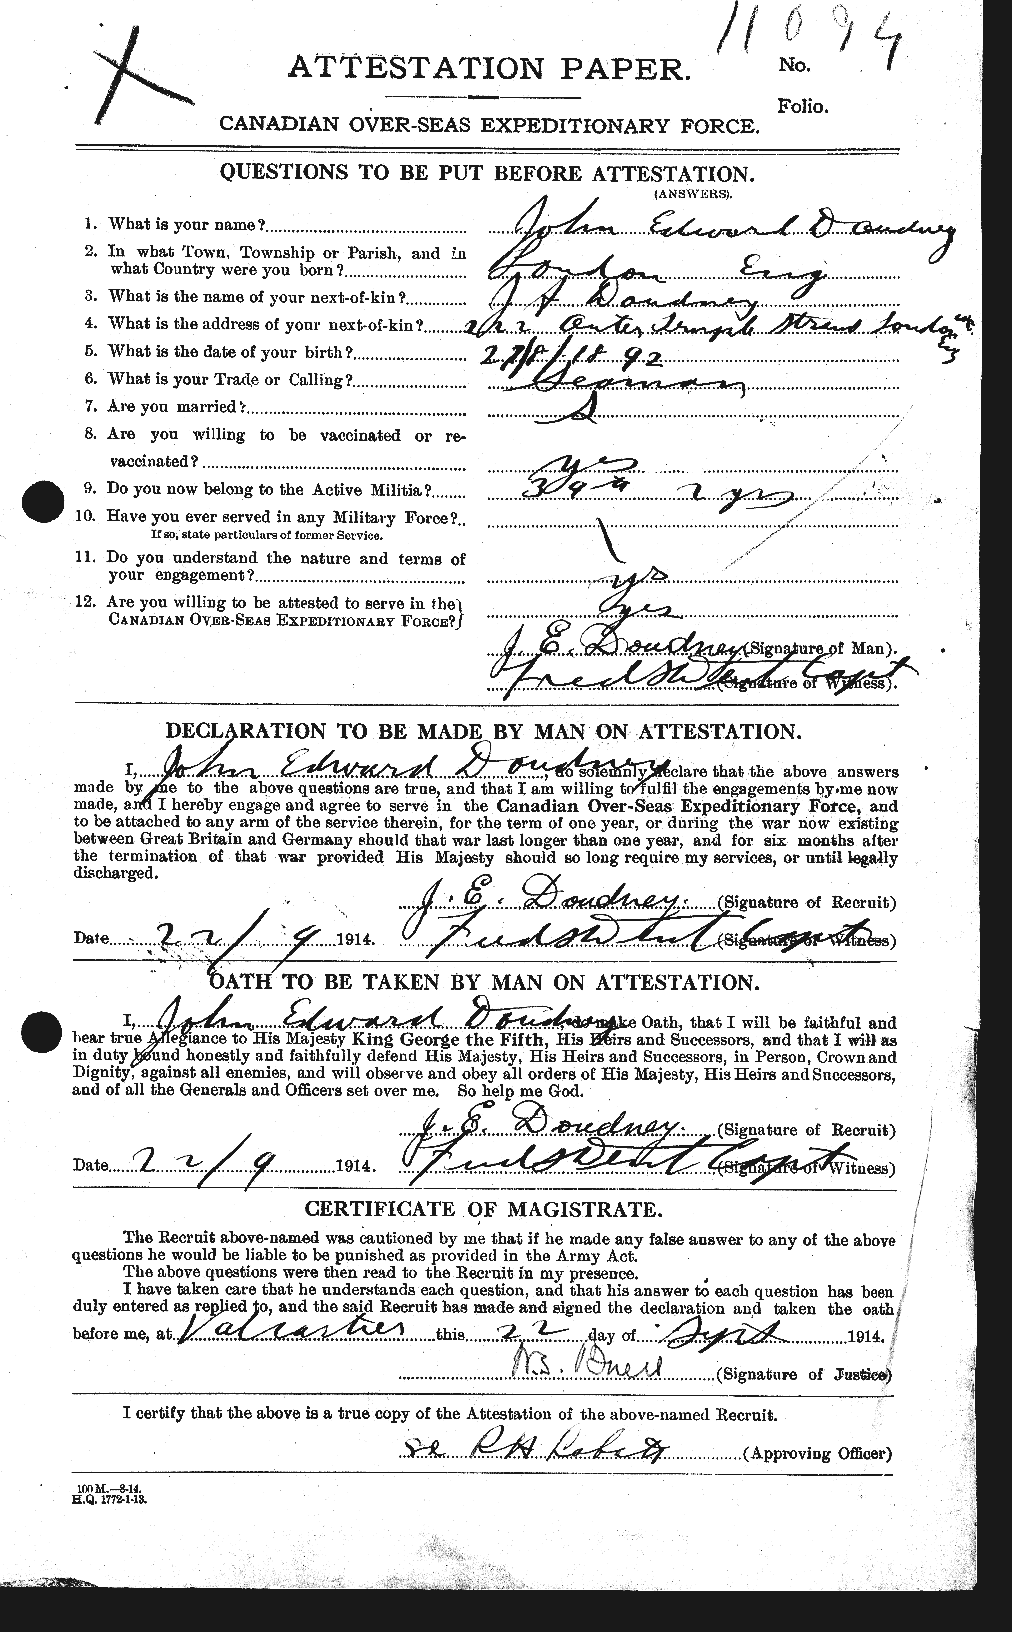 11094
ATTESTATION PAPER.
No.
Folio.
CANADIAN OVER-SEAS EXPEDITIONARY FORCE.
QUESTIONS TO BE PUT BEFORE ATTESTATION.
(ANSWERS).
1. What is your name? John Edward Doudney
2. In what Town, Township or Parish, and in
what Country were you born? London Eng
3. What is the name of your next-of-kin? Doudney
4. What is the address of your next-of-kin? 222 Outer Temple Strand London
Eng
5. What is the date of your birth? 27/8/1892
6. What is your Trade or Calling? Seaman
7. Are you married? S
8. Are you willing to be vaccinated or re-
vaccinated? yes
9. Do you now belong to the Active Militia? 39th 2 yrs
10. Have you ever served in any Military Force?
If so, state particulars of former Service.
11. Do you understand the nature and terms of
your engagement? yes
12. Are you willing to be attested to serve in the
CANADIAN OVER-SEAS EXPEDITIONARY FORCE? yes
J. E. Doudney (Signature of Man).
Capt (Signature of Witness).
DECLARATION TO BE MADE BY MAN ON ATTESTATION.
I, John Edward Doudney, do solemnly declare that the above answers
made by me to the above questions are true, and that I am willing to fulfil the engagements by me now
made, and I hereby engage and agree to serve in the Canadian Over-Seas Expeditionary Force, and
to be attached to any arm of the service therein, for the term of one year, or during the war now existing
between Great Britain and Germany should that war last longer than one year, and for six months after
the termination of that war provided His Majesty should so long require my services, or until legally
discharged.
J. E. Doudney. (Signature of Recruit)
Date 22/9 1914. Capt (Signature of Witness)
OATH TO BE TAKEN BY MAN ON ATTESTATION.
I, John Edward Doudney, do make Oath, that I will be faithful and
bear true Allegiance to His Majesty King George the Fifth, His Heirs and Successors, and that I will as
in duty bound honestly and faithfully defend His Majesty, His Heirs and Successors, in Person, Crown and
Dignity, against all enemies, and will observe and obey all orders of His Majesty, His Heirs and Successors,
and of all the Generals and Officers set over me. So help me God.
J. E. Doudney. (Signature of Recruit)
Date 22/9 1914. Capt (Signature of Witness)
CERTIFICATE OF MAGISTRATE.
The Recruit above-named was cautioned by me that if he made any false answer to any of the above
questions he would be liable to be punished as provided in the Army Act.
The above questions were then read to the Recruit in my presence.
I have taken care that he understands each question, and that his answer to each question has been
duly entered as replied to, and the said Recruit has made and signed the declaration and taken the oath
before me, at Valcartier this 22 day of Sept 1914.
(Signature of Justice)
I certify that the above is a true copy of the Attestation of the above-named Recruit.
(Approving Officer)
100 M.—8-14.
H.Q. 1772-1-13.